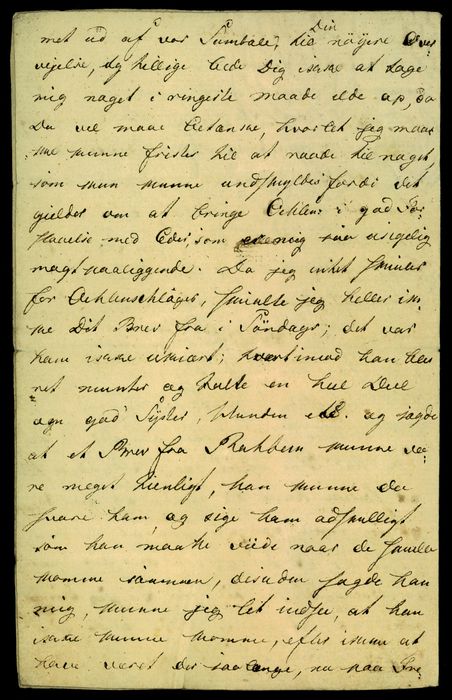 met ud af vor Samtale, til Din nöyere Over
vejelse, og hellige bede Dig ikke at tage
mig noget i ringeste maade ilde op, da
Du vel maae betænke, hvorlet jeg maa-
ske kunne fristes til at raade til noget,
som kun kunne undskyldes fordi det
gielder om at bringe Oehlens: i god For
staaelse med Eder, som er mig saa usigelig
magtpaaliggende. Da jeg intet skiuler
for Oehlenschläger, skiulte jeg heller ik-
ke Dit Brev fra i Söndags; det var
ham ikke ukiært; tvertimod han blev
ret munter og talte en heel Deel
om god Syster, og sagde
at et Brev fra Rahbek kunne væ-
re meget tienligt, han kunne da
svare ham, og sige ham adskilligt
som han maatte vide naar de skulle
komme sammen, desuden sagde han
mig, kunne jeg let indsee, at han
ikke kunne komme, efter ikke at
have været der saa længe, nu paa